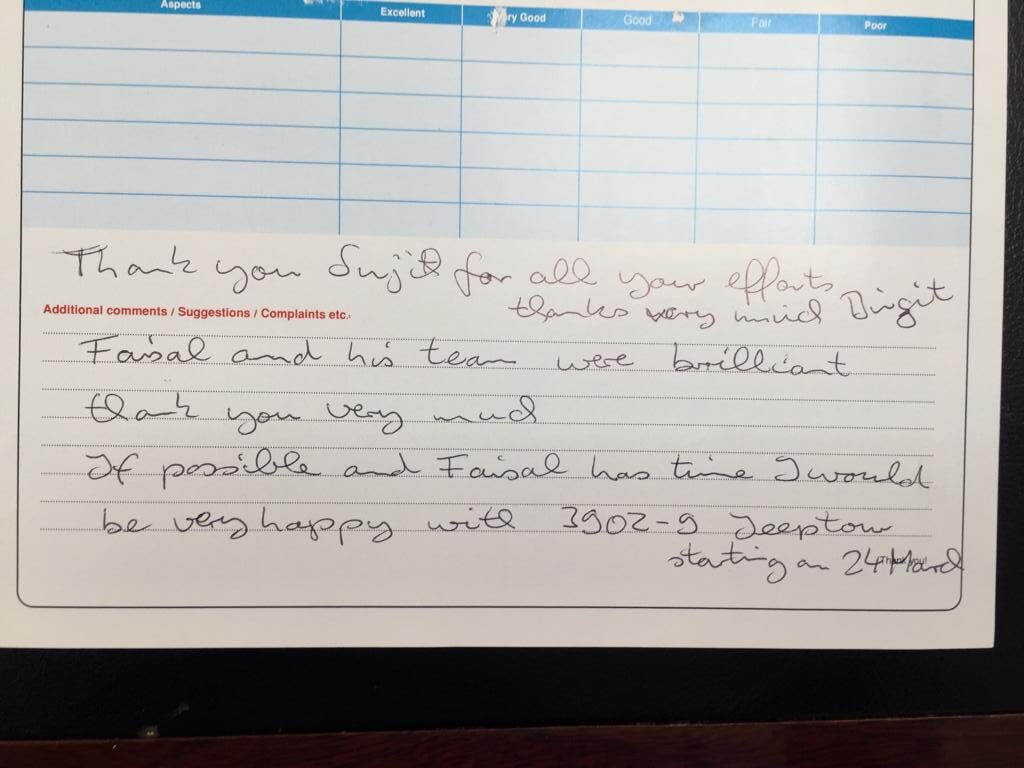 Aspects Excellent Very Good Good Fair Poor
Thank you Sujit for all your efforts
thanks very much Birgit
Additional comments / Suggestions / Complaints etc.
Faisal and his team were brilliant
thank you very much
If possible and Faisal has time I would
be very happy with 3902-9 Jeeptour
starting on 24 March
Thank you!